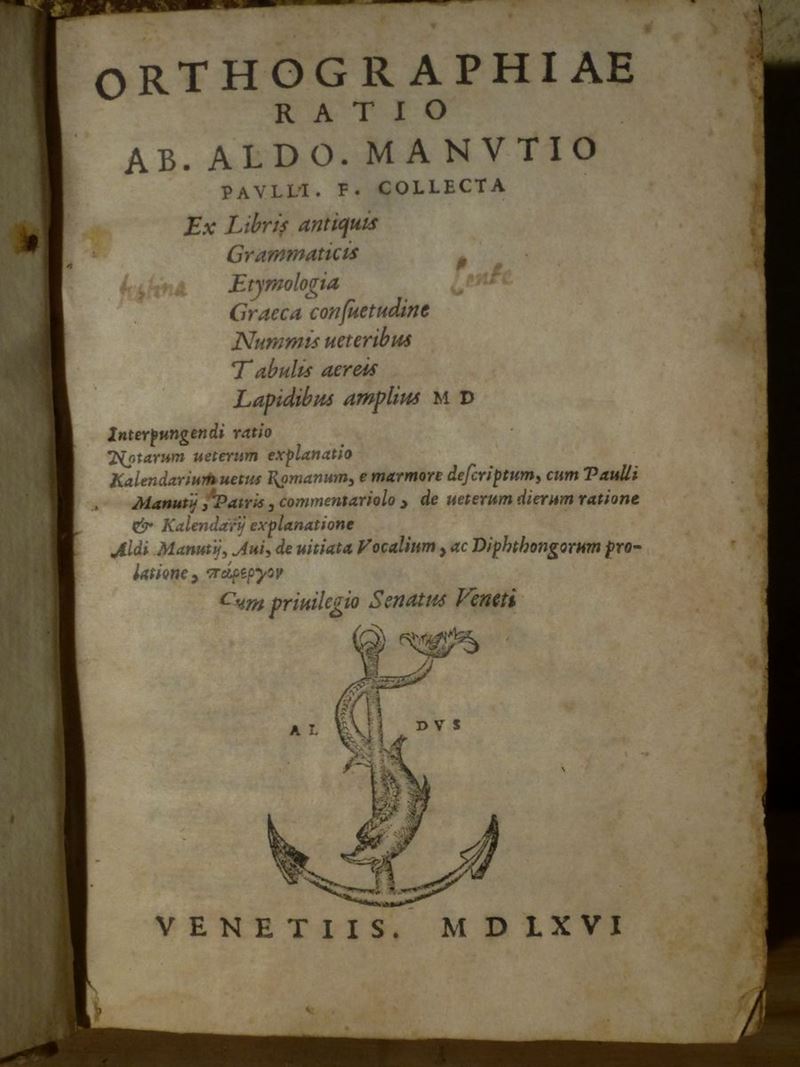 ORTHOGRAPHIAE
RATIO
AB. ALDO. MANVTIO
PAVLLI. F. COLLECTA
Ex Libris antiquis
Grammaticis
festina Etymologia lente
Graeca conſuetudine
Nummis ueteribus
Tabulis aereis
Lapidibus amplius M D
Interpungendi ratio
Notarum ueterum explanatio
Kalendarium uetus Romanum, e marmore deſcriptum, cum Paulli
Manutij, Patris, commentariolo, de ueterum dierum ratione
& Kalendarij explanatione
Aldi Manutij, Aui, de uitiata Vocalium, ac Diphthongorum pro-
latione, πάρεργον
Cum priuilegio Senatus Veneti
AL DVS
VENETIIS. M D LXVI